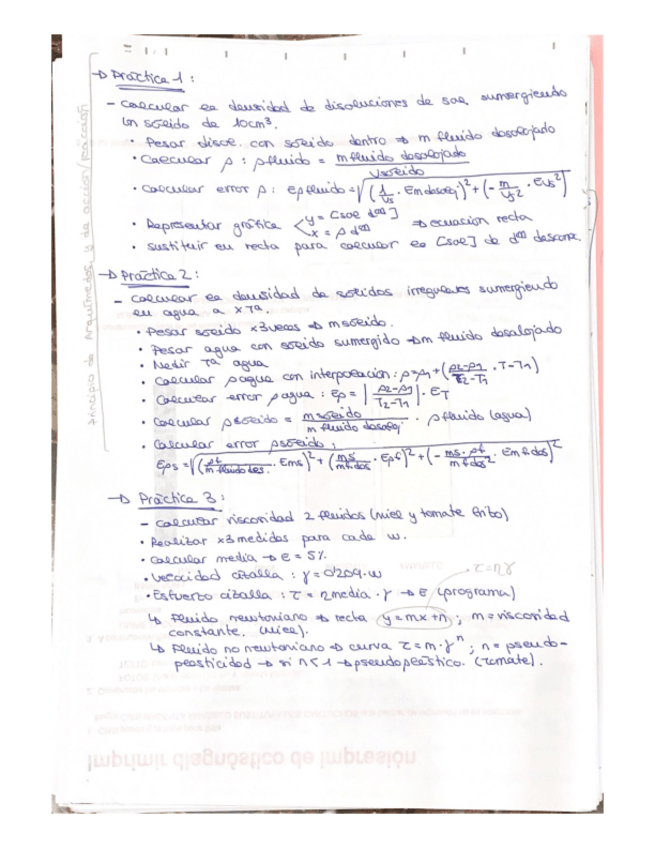 → Práctica 1:
- Calcular la densidad de disoluciones de sal, sumergiendo
un sólido de 10cm³.
· Pesar disol. con sólido dentro → m fluido desalojado
· Calcular ρ : ρfluido = m fluido desalojado / Vsólido
· Calcular error ρ : Eρfluido = √((1/Vs · Emdesaloj)² + (-m/Vs² · EVs)²)
· Representar gráfica < y = [sal dón] x = ρ dón → ecuación recta
· Sustituir en recta para calcular la [sal] de dón descono.
Principio de Arquímedes, y de acción/reacción
→ Práctica 2:
- Calcular la densidad de sólidos irregulares sumergiendo
en agua a x Tª.
· Pesar sólido x3 veces → m sólido.
· Pesar agua con sólido sumergido → m fluido desalojado
· Medir Tª agua
· Calcular ρagua con interpolación : ρ=ρ1+(ρ2-ρ1/T2-T1 · T-T1)
· Calcular error ρagua : Eρ = |ρ2-ρ1/T2-T1| · ET
· Calcular ρsólido = m sólido / m fluido desaloj · ρ fluido (agua)
· Calcular error ρsólido:
Eρs = √((ρf/m fluido des. · Ems)² + (ms/mf.dos · Eρf)² + (-ms·ρf/mfdos² · Emfdos)²
→ Práctica 3:
- Calcular viscosidad 2 fluidos (miel y tomate frito)
· Realizar x3 medidas para cada w.
· Calcular media → E = 5%.
· Velocidad cizalla : γ = 0'209·w
· τ=ηγ
· Esfuerzo cizalla : τ = ηmedia · γ → E (programa)
↳ Fluido newtoniano → recta y=mx+n ; m=viscosidad
constante. (miel).
↳ Fluido no newtoniano → curva τ=m·γⁿ ; n = pseudo-
plasticidad → si n<1 → pseudoplástico. (tomate).
Imprimir diagnóstico de impresión